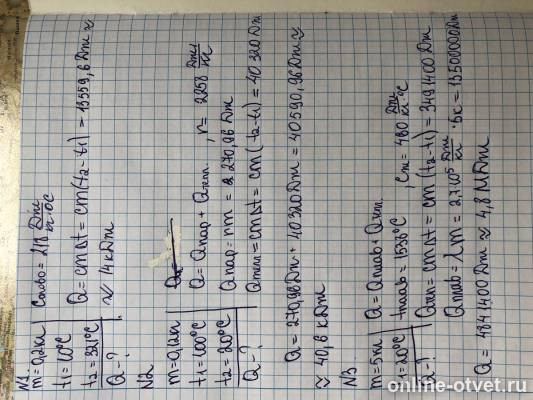 N1
m=0,2кг
t1=10°C
t2=321°C
Q-?
Cолово=218 Дж/кг·°C
Q=cmΔt=cm(t2-t1)=13559,6 Дж≈
≈14кДж
N2
m=0,12кг
t1=100°C
t2=20°C
Q-?
Q=Qпар+Qтепл. , r=2258 Дж/кг
Qпар=rm=270,96 Дж
Qтепл=cmΔt=cm(t2-t1)=40320 Дж
Q=270,96 Дж+40320 Дж=40590,96 Дж≈
≈40,6 кДж
N3
m=5кг
t=20°C
Q-?
Q=Qплав+Qтеп
tплав=1536°C , Cж=460 Дж/кг·°C
Qтеп=cmΔt=cm(t2-t1)=3491400 Дж
Qплав=λm=2,7·10⁵ Дж/кг·5к=1350000 Дж
Q=4841400 Дж≈4,8 МДж
online-otvet.ru